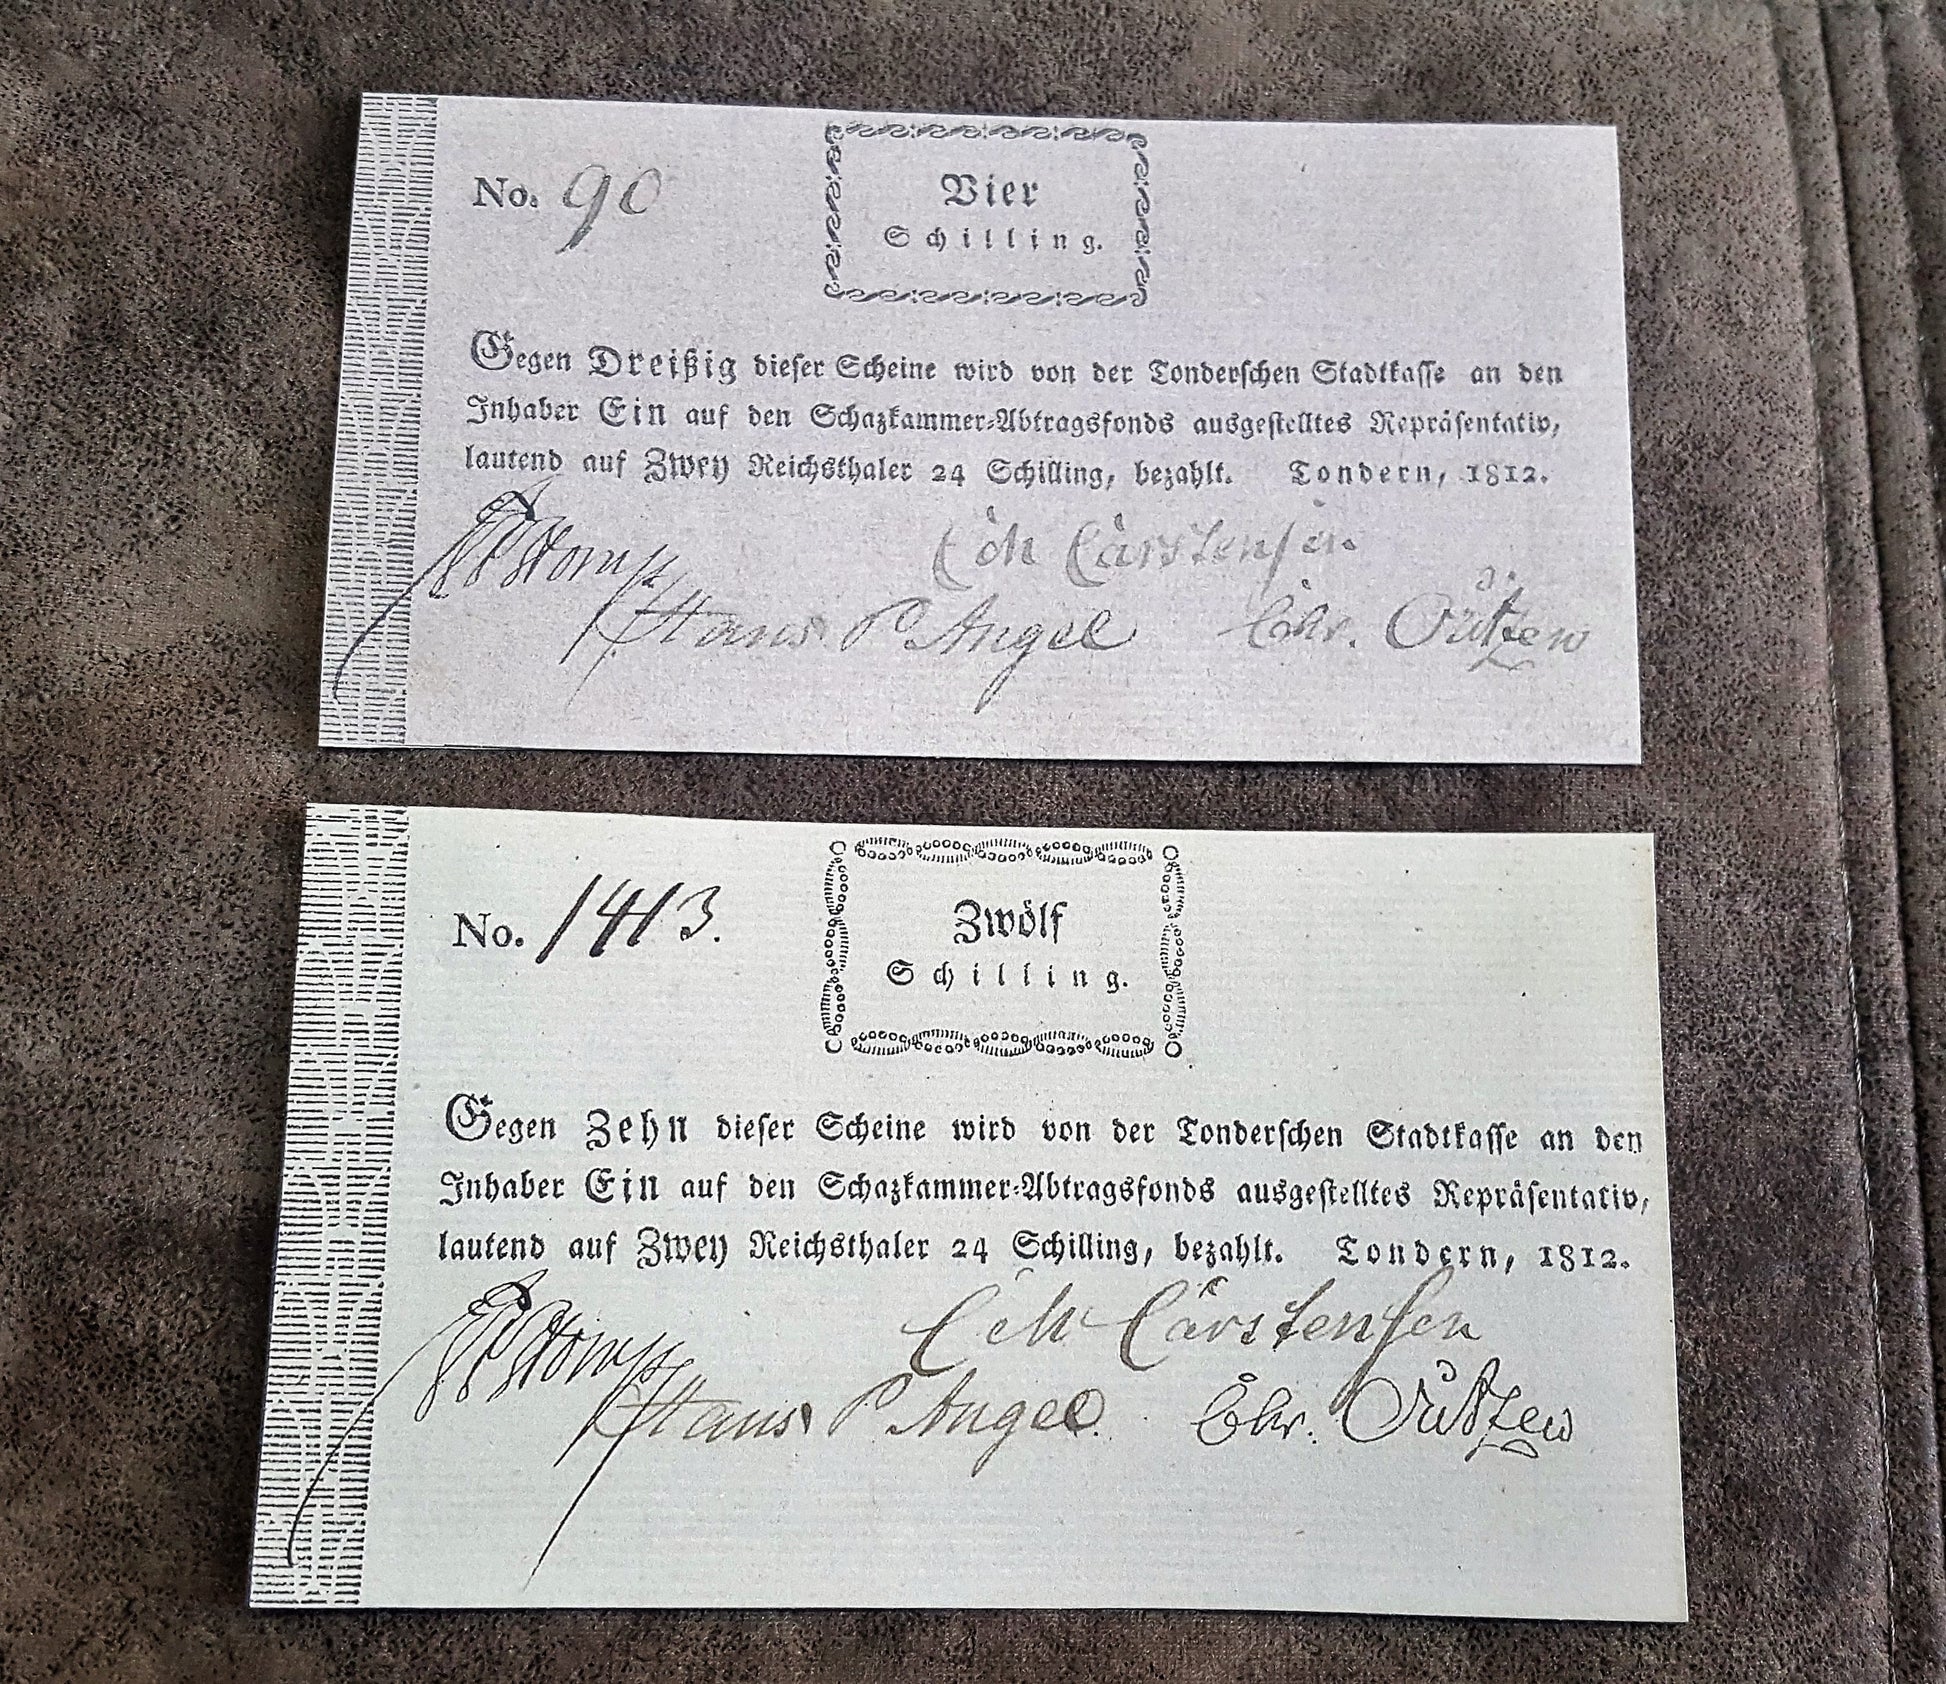 No. 90
Vier
Schilling.
Gegen Dreißig dieser Scheine wird von der Tonderschen Stadtkasse an den
Inhaber Ein auf den Schazkammer-Abtragsfonds ausgestelltes Repräsentativ,
lautend auf Zwey Reichsthaler 24 Schilling, bezahlt. Tondern, 1812.
Carstensen
Hans P Angel Chr.
No. 1413.
Zwölf
Schilling.
Gegen Zehn dieser Scheine wird von der Tonderschen Stadtkasse an den
Inhaber Ein auf den Schazkammer-Abtragsfonds ausgestelltes Repräsentativ,
lautend auf Zwey Reichsthaler 24 Schilling, bezahlt. Tondern, 1812.
Carstensen
Hans P Angel Chr.